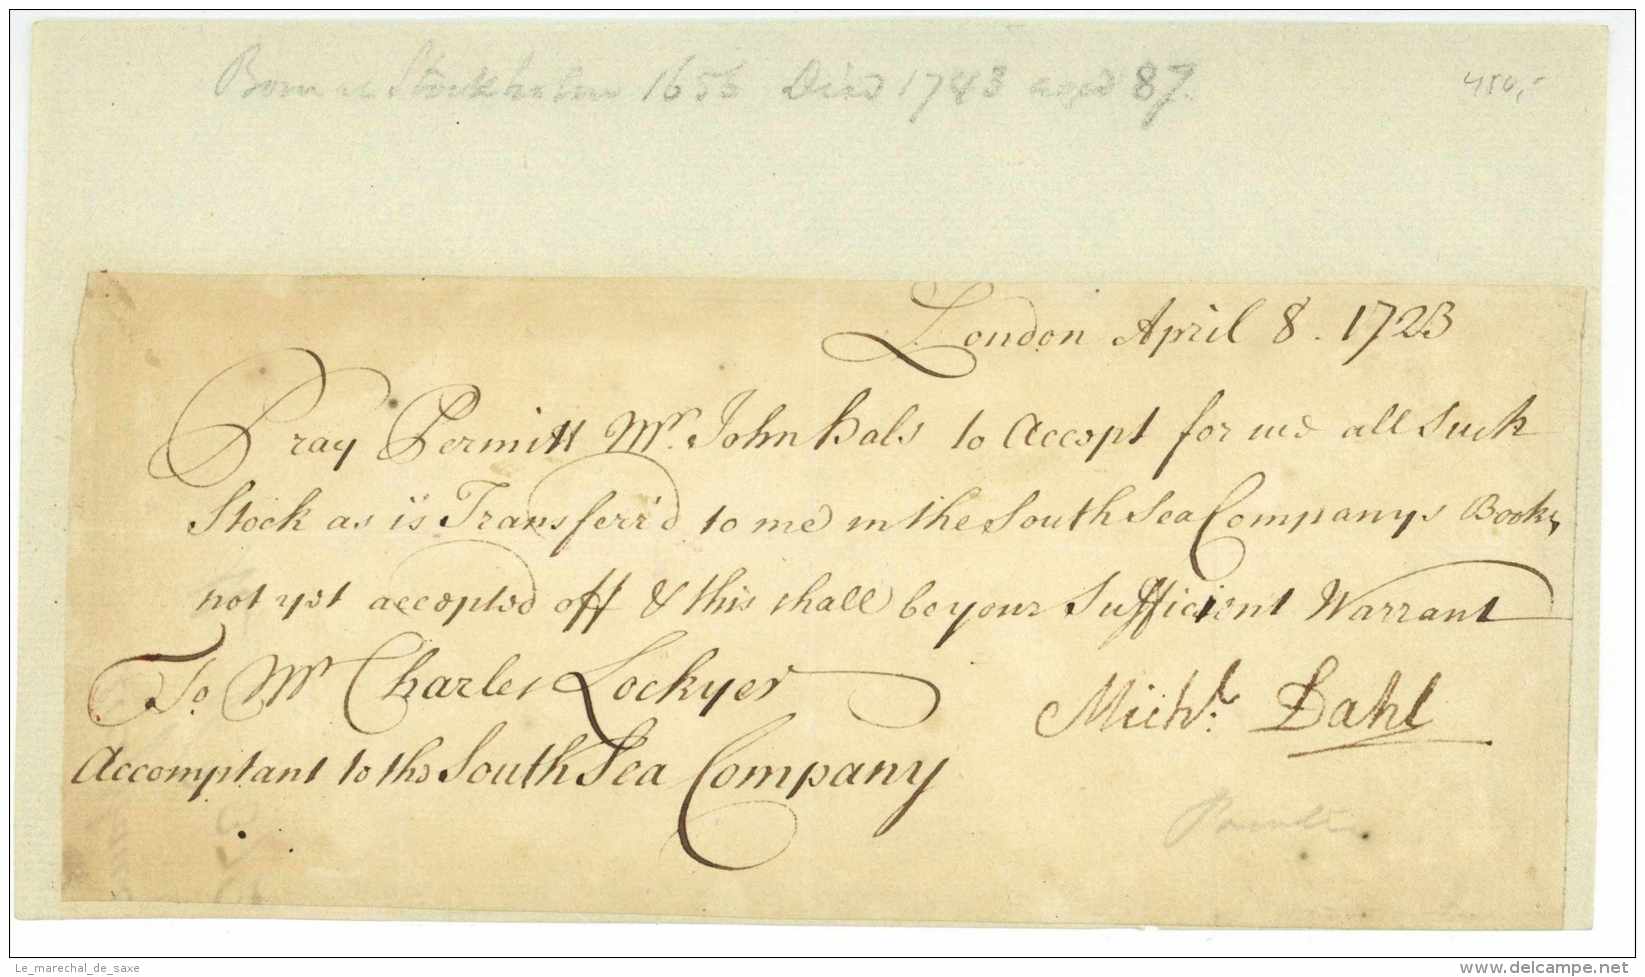 Born at Stockholm 1656 Died 1743 aged 87.
450,-
London April 8. 1723
Pray Permitt Mr. John Hals to Accept for me all Such
Stock as is Transferr'd to me in the South Sea Companys Books
not yet accepted off & this shall be your Sufficient Warrant
To Mr Charles Lockyer
Accomptant to the South Sea Company
Michl. Dahl
Painter
Le_marechal_de_saxe
delcampe.net